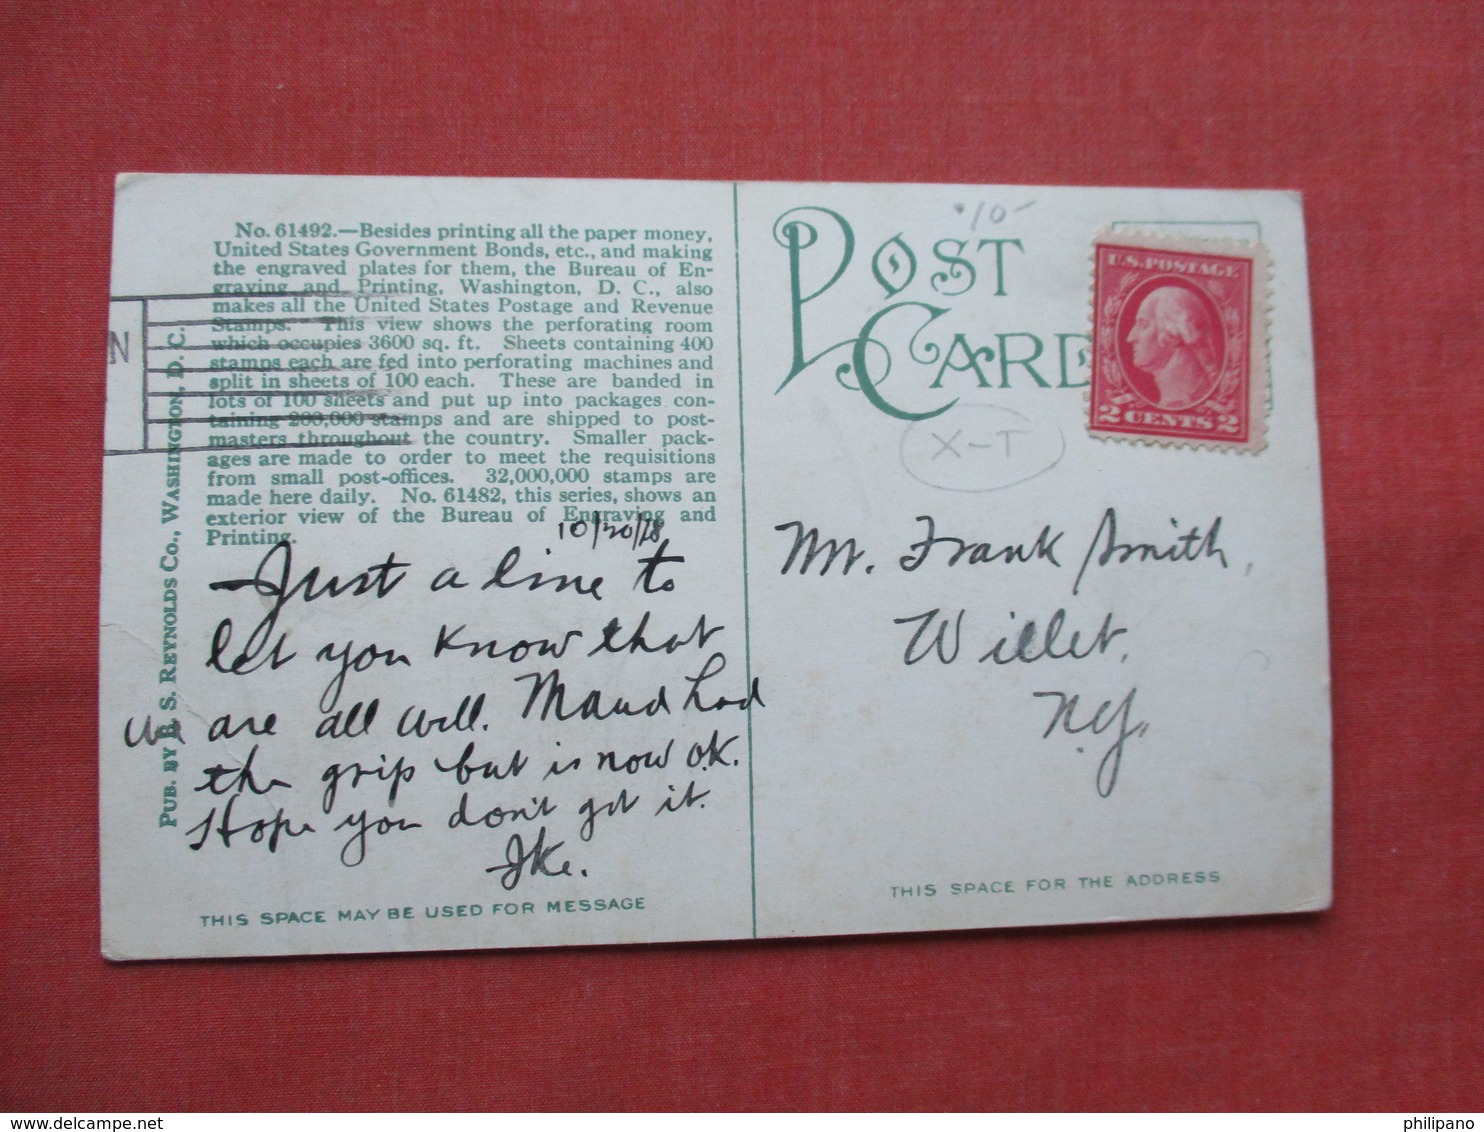 No. 61492.—Besides printing all the paper money,
United States Government Bonds, etc., and making
the engraved plates for them, the Bureau of En-
graving and Printing, Washington, D. C., also
makes all the United States Postage and Revenue
Stamps. This view shows the perforating room
which occupies 3600 sq. ft. Sheets containing 400
stamps each are fed into perforating machines and
split in sheets of 100 each. These are banded in
lots of 100 sheets and put up into packages con-
taining 200,000 stamps and are shipped to post-
masters throughout the country. Smaller pack-
ages are made to order to meet the requisitions
from small post-offices. 32,000,000 stamps are
made here daily. No. 61482, this series, shows an
exterior view of the Bureau of Engraving and
Printing.
10/20/18
Just a line to
let you know that
we are all well. Maud had
the grip but is now O.K.
Hope you don't get it.
Ike.
THIS SPACE MAY BE USED FOR MESSAGE
PUB. BY B. S. REYNOLDS CO., WASHINGTON, D. C.
N
10-
POST
CARD
U.S. POSTAGE
2 CENTS 2
X-T
Mr. Frank Smith,
Willet,
N.Y.
THIS SPACE FOR THE ADDRESS
delcampe.net
philipano